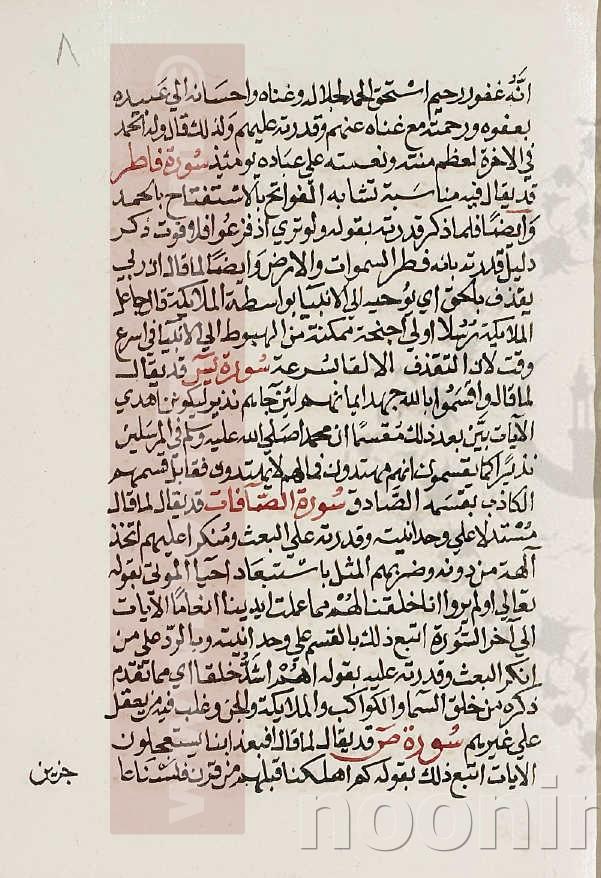 ٨
انَّهُ غفور رحيم استحق الحمد لجلاله وغناه واحسانه الي عبيده
بعفوه ورحمته مع غناه عنهم وقدرته عليهم ولذلك قال وله الحمد
في الاخرة لعظم منته ونعمته علي عباده يومئذ سورة فاطر
قد يقال فيه مناسبة تشابه الفواتح بالاستفتاح بالحمد
وايضًا فلما ذكر قدرته بقوله ولو تري اذ فزعوا فلا فوت ذكر
دليل قدرته بانه فطر السموات والارض وايضًا لما قال ان ربي
يقذف بالحق اي يوحيه الي الانبيا بواسطة الملايكة قال جاعل
الملايكة رسلا اولي اجنحة ممكنة من الهبوط الي الانبيا في اسرع
وقت لان القذف الالقا بسرعة سورة يس قد يقال
لما قال واقسموا بالله جهد ايمانهم لئن جاءهم نذير ليكونن اهدي
الآيات بيّن بعد ذلك مُقسمًا ان محمدا صلي الله عليه وسلم لمن المرسلين
نذيرًا كما يقسمون انهم مهتدون فما لهم لا يهتدون فقابل قسمهم
الكاذب بقسمه الصّادق سُورة الصّآفات قد يقال لما قال
مُسْتدلا علي وحدانيته وقدرته علي البعث ومُنكرا عليهم اتخذ
آلهة من دونه وضربهم المثل باستبعاد احيآ الموتي بقوله
تعالي اولم يروا انا خلقنا لهم مما عملت ايدينا انعامًا الآيات
الي آخر السّورة اتبع ذلك بالقسم علي وحدانيته وبالردّ علي من
انكر البعث وقدرته عليه بقوله اهُمْ اشدّ خلقا اي مما تقدم
ذكره من خلق السمآ والكواكب والملايكة والجن وغلب فيه من يعقل
علي غيرهم سورة صَ قد يقال لما قال افبعذابنا يستعجلون
الايات اتبع ذلك بقوله كم اهلكنا قبلهم من قرن فلستنا تا
جزين
noonin